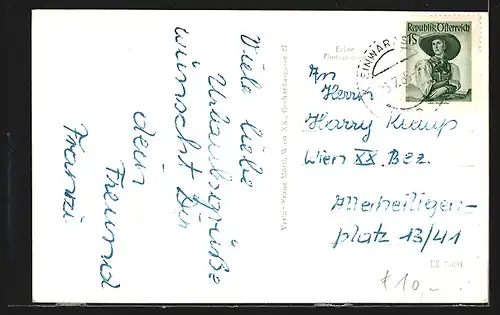 Viele liebe
Urlaubsgrüße
wünscht Dir
dein
Freund
Franzi
Verlag Franz Mörtl, Wien XX., Gerhardusgasse 27
Echte
Republik Österreich
1S
An
Herrn
Harry
Wien XX. Bez.
Allerheiligen-
platz 13/41
10,-